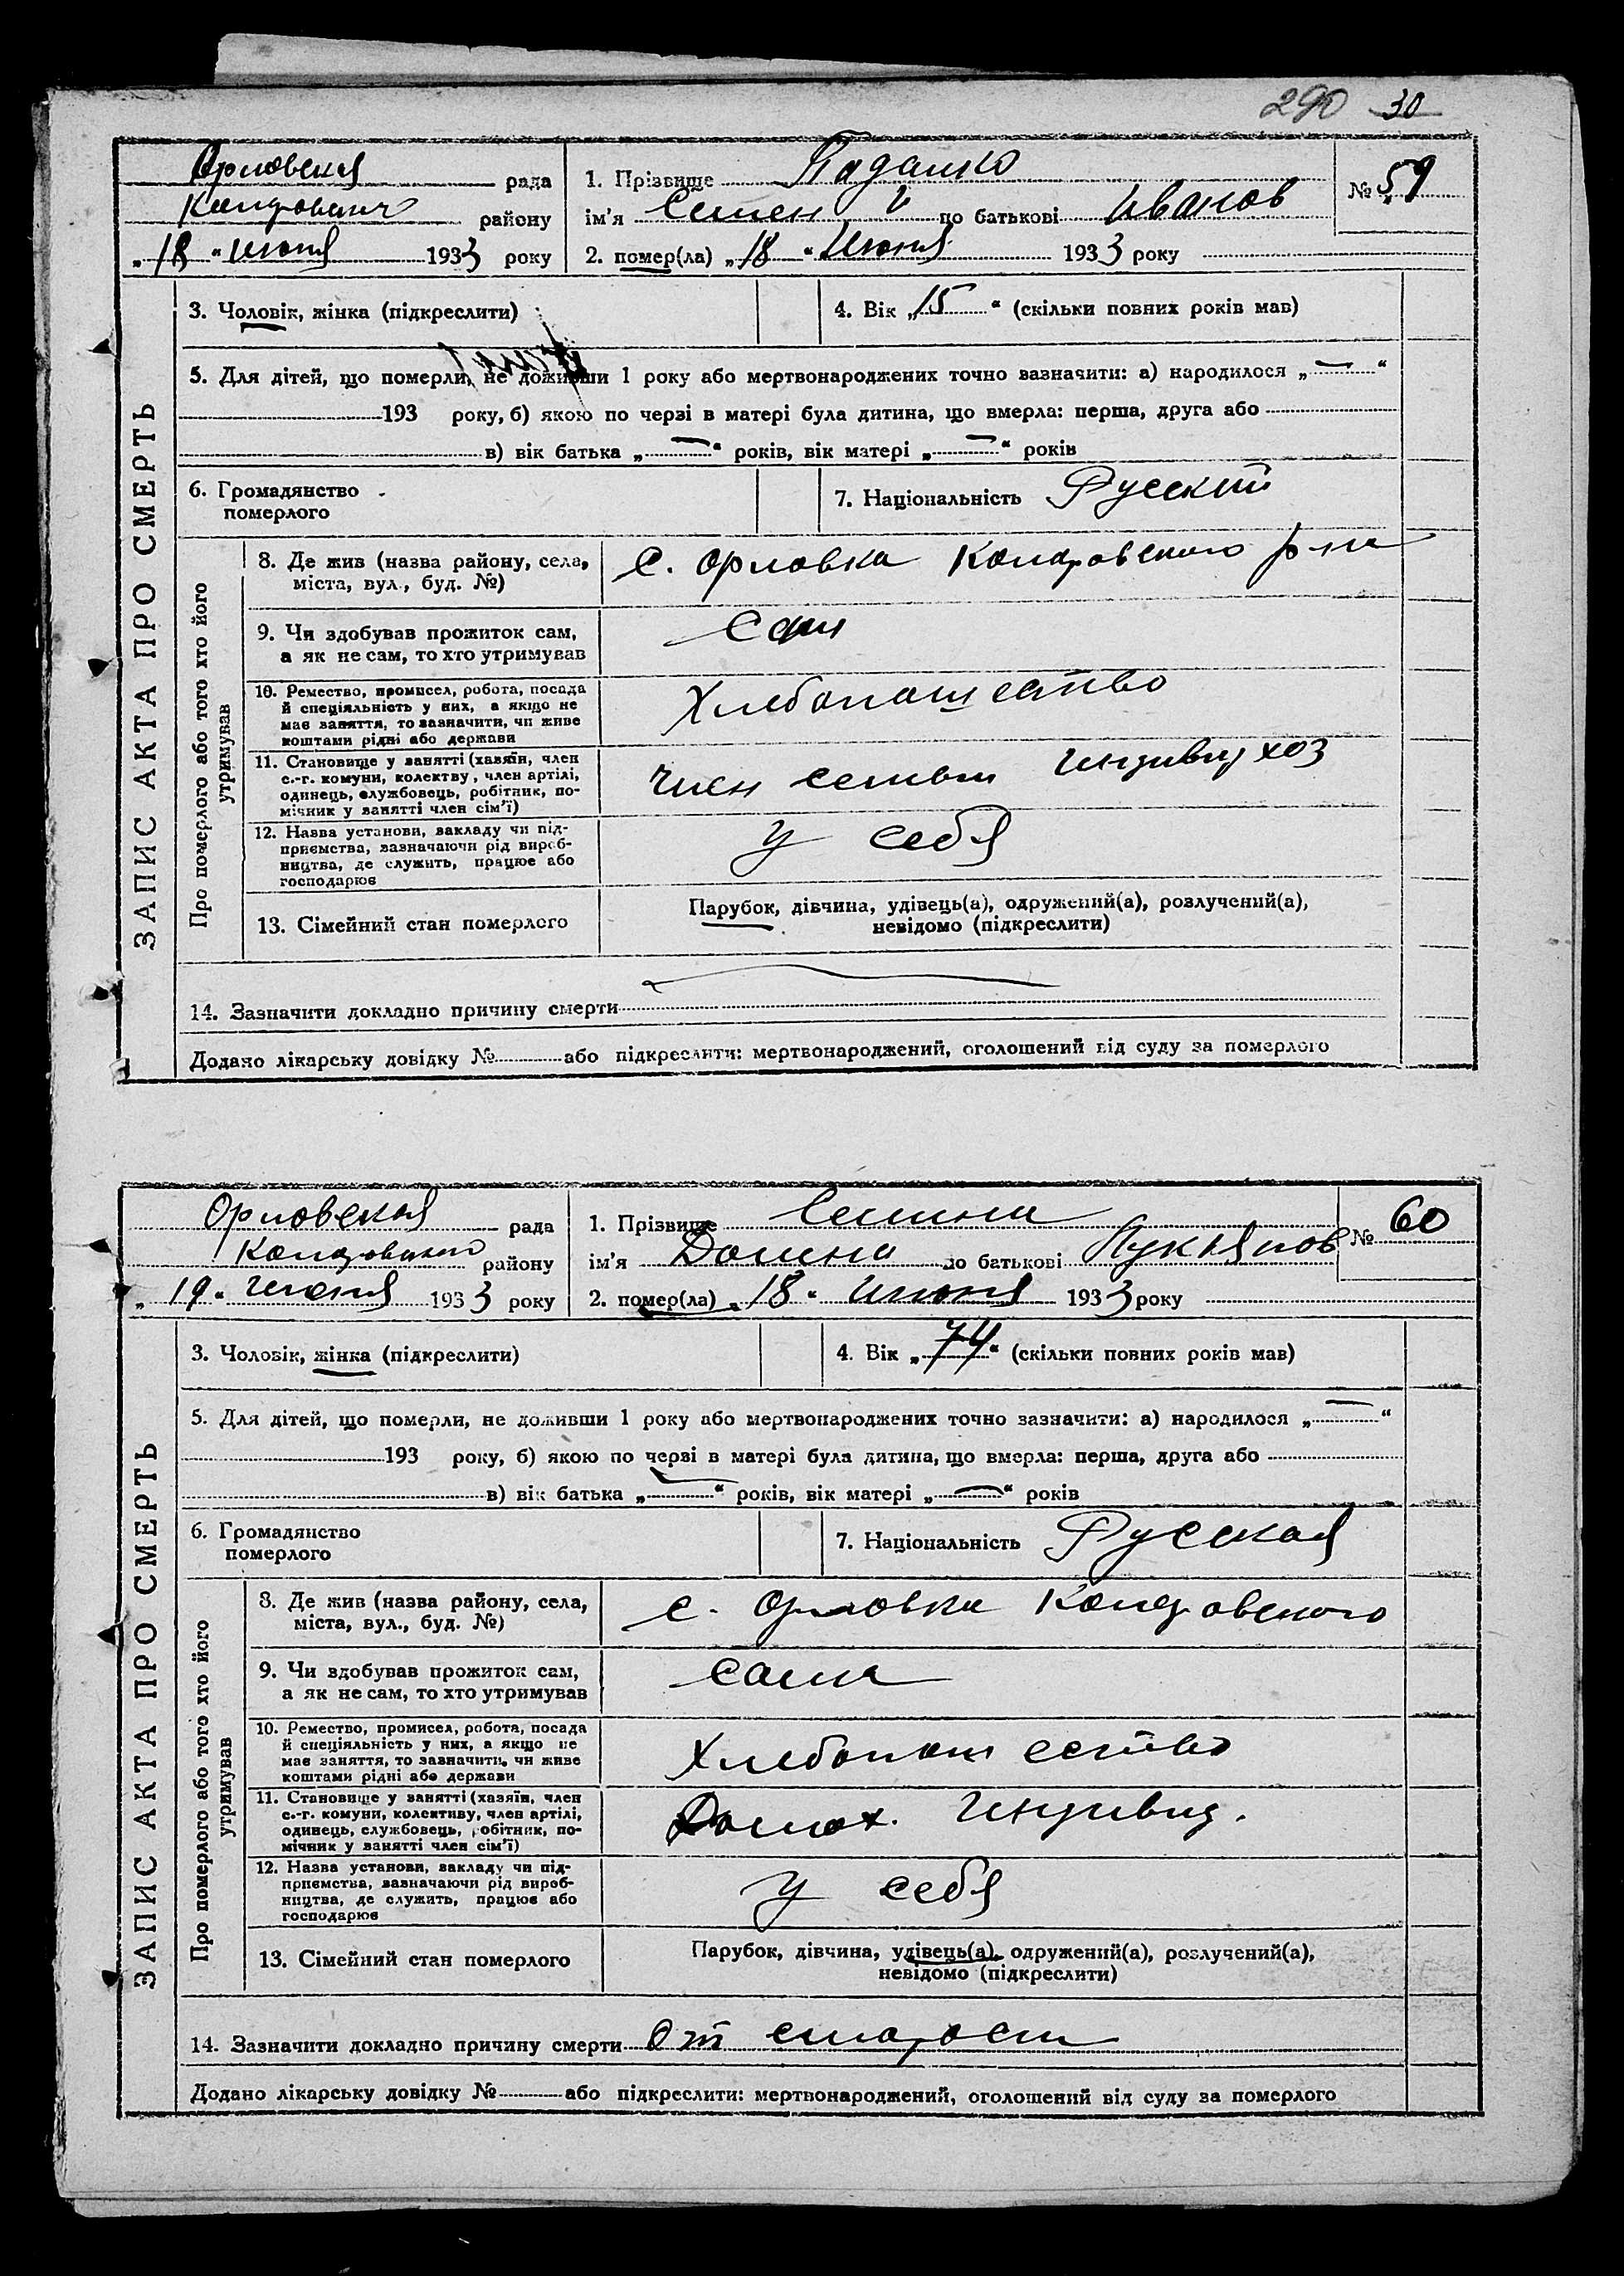 290 30
Орловская рада
района
1. Прізвище
№ 59
ім'я Семен по батькові Иванов
"18" июня 1933 року
2. помер(ла) "18" Июня 1933 року
ЗАПИС АКТА ПРО СМЕРТЬ
3. Чоловік, жінка (підкреслити)
4. Вік "15" (скільки повних років мав)
5. Для дітей, що померли, не доживши 1 року або мертвонароджених точно зазначити: а) народилося „ — “
193 року, б) якою по черзі в матері була дитина, що вмерла: перша, друга або
в) вік батька „ — “ років, вік матері „ — “ років
6. Громадянство
померлого
7. Національність Русский
Про померлого або того хто його
утримував
8. Де жив (назва району, села,
міста, вул., буд. №)
с. Орловка р-на
9. Чи здобував прожиток сам,
а як не сам, то хто утримував
Сам
10. Ремество, промисел, робота, посада
й спеціяльність у них, а якщо не
має заняття, то зазначити, чи живе
коштами рідні або держави
Хлебопашество
11. Становище у занятті (хазяїн, член
с.-г. комуни, колектву, член артілі,
одинець, службовець, робітник, по-
мічник у занятті член сім'ї)
член семьи индивид хоз
12. Назва установи, закладу чи під-
приємства, зазначаючи рід вироб-
ництва, де служить, працює або
господарює
у себя
13. Сімейний стан померлого
Парубок, дівчина, удівець(а), одружений(а), розлучений(а),
невідомо (підкреслити)
14. Зазначити докладно причину смерти
Додано лікарську довідку № або підкреслити: мертвонароджений, оголошений від суду за померлого
Орловская рада
району
1. Прізвище Семина
№ 60
ім'я Домна по батькові Лукьянов
"19" июня 1933 року
2. помер(ла) "18" июня 1933 року
ЗАПИС АКТА ПРО СМЕРТЬ
3. Чоловік, жінка (підкреслити)
4. Вік "74" (скільки повних років мав)
5. Для дітей, що померли, не доживши 1 року або мертвонароджених точно зазначити: а) народилося „ — “
193 року, б) якою по черзі в матері була дитина, що вмерла: перша, друга або
в) вік батька „ — “ років, вік матері „ — “ років
6. Громадянство
померлого
7. Національність Русская
Про померлого або того хто його
утримував
8. Де жив (назва району, села,
міста, вул., буд. №)
с. Орловка
9. Чи здобував прожиток сам,
а як не сам, то хто утримував
сама
10. Ремество, промисел, робота, посада
й спеціяльність у них, а якщо не
має заняття, то зазначити, чи живе
коштами рідні або держави
Хлебопашество
11. Становище у занятті (хазяїн, член
с.-г. комуни, колективу, член артілі,
одинець, службовець, робітник, по-
мічник у занятті член сім'ї)
Домох. Индивид.
12. Назва установи, закладу чи під-
приємства, зазначаючи рід вироб-
ництва, де служить, працює або
господарює
у себя
13. Сімейний стан померлого
Парубок, дівчина, удівець(а), одружений(а), розлучений(а),
невідомо (підкреслити)
14. Зазначити докладно причину смерти От старости
Додано лікарську довідку № або підкреслити: мертвонароджений, оголошений від суду за померлого